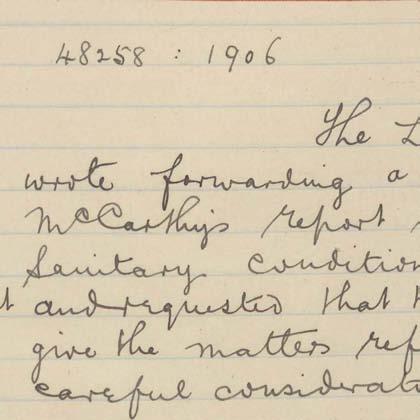 48258 : 1906
The L
wrote forwarding a
McCarthy's report
Sanitary condition
t and requested that
give the matters ref
careful considerat